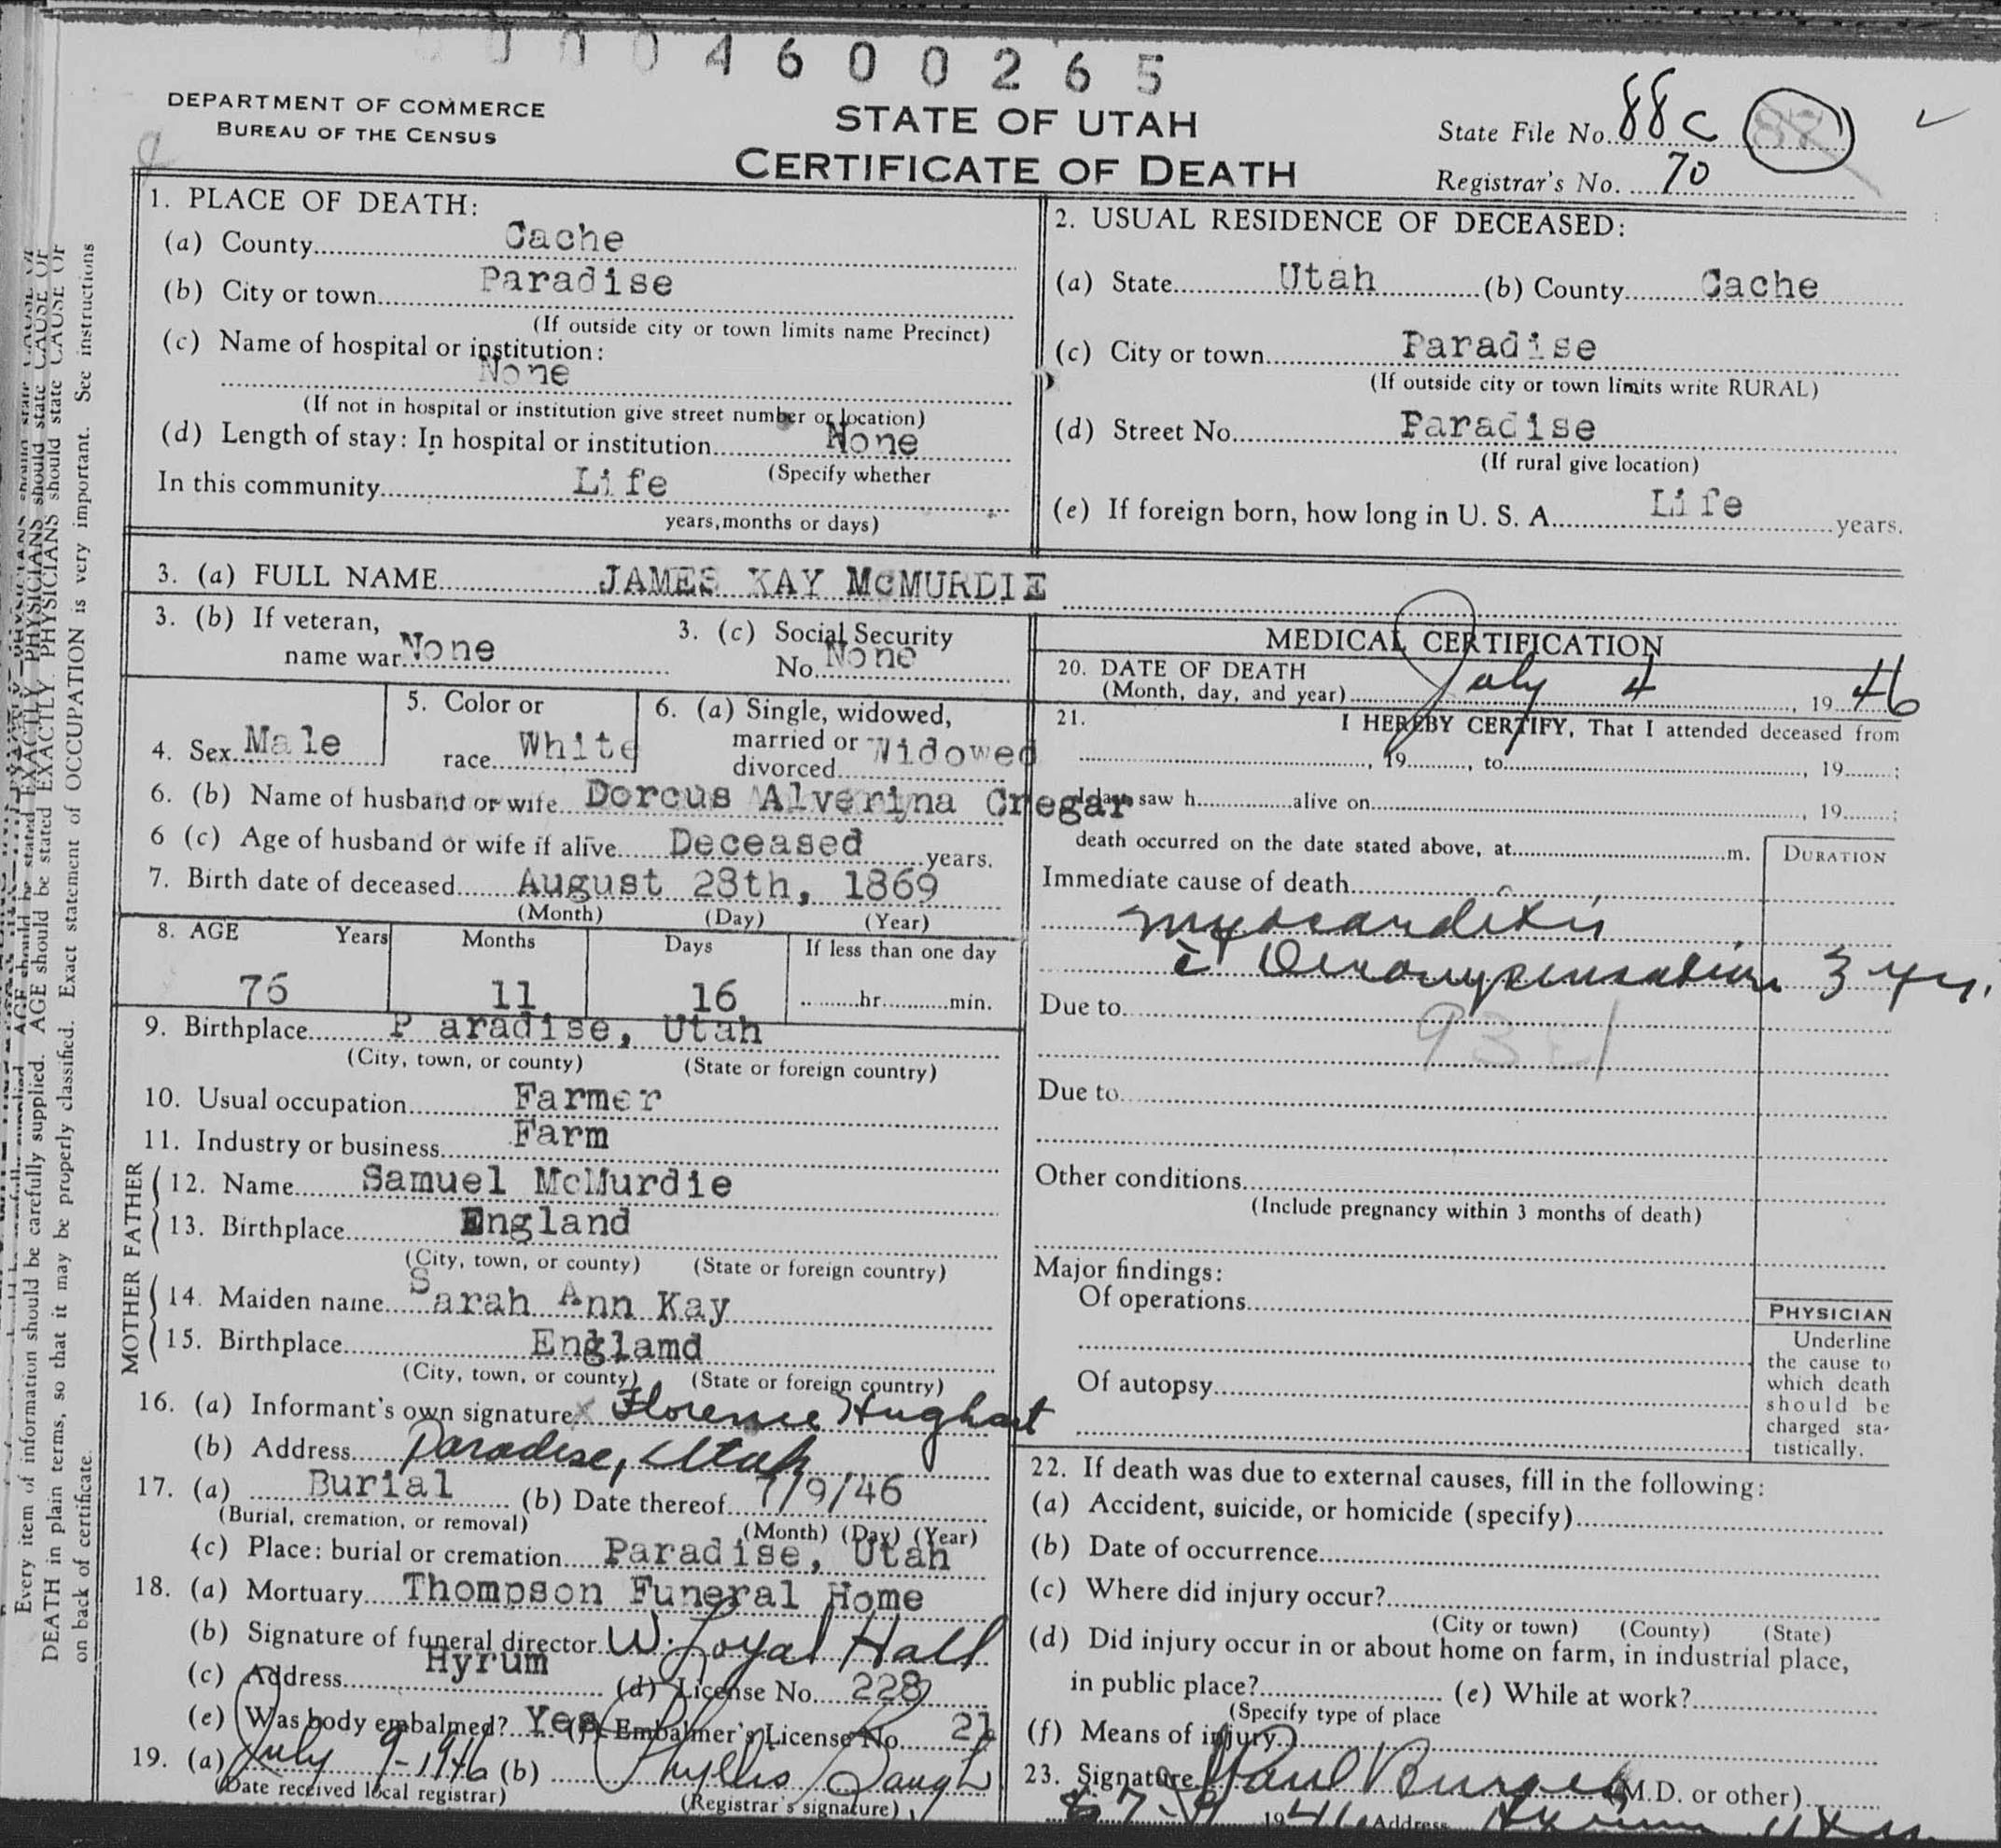 4600265
DEPARTMENT OF COMMERCE
BUREAU OF THE CENSUS
STATE OF UTAH
CERTIFICATE OF DEATH
State File No. 88 c
Registrar's No. 70
1. PLACE OF DEATH:
(a) County Cache
(b) City or town Paradise
(If outside city or town limits name Precinct)
(c) Name of hospital or institution:
None
(If not in hospital or institution give street number or location)
(d) Length of stay: In hospital or institution None
(Specify whether
In this community Life
years, months or days)
2. USUAL RESIDENCE OF DECEASED:
(a) State Utah (b) County Cache
(c) City or town Paradise
(If outside city or town limits write RURAL)
(d) Street No. Paradise
(If rural give location)
(e) If foreign born, how long in U. S. A. Life years.
3. (a) FULL NAME JAMES KAY McMURDIE
3. (b) If veteran,
name war None
3. (c) Social Security
No. None
4. Sex Male
5. Color or
race White
6. (a) Single, widowed,
married or
divorced Widowed
6. (b) Name of husband or wife Dorcus Alverina Cregar
6 (c) Age of husband or wife if alive Deceased years.
7. Birth date of deceased August 28th, 1869
(Month) (Day) (Year)
8. AGE Years Months Days If less than one day
76 11 16 hr. min.
9. Birthplace Paradise, Utah
(City, town, or county) (State or foreign country)
10. Usual occupation Farmer
11. Industry or business Farm
FATHER
12. Name Samuel McMurdie
13. Birthplace England
(City, town, or county) (State or foreign country)
MOTHER
14. Maiden name Sarah Ann Kay
15. Birthplace Englamd
(City, town, or county) (State or foreign country)
16. (a) Informant's own signature x Florence Hughart
(b) Address Paradise, Utah
17. (a) Burial (b) Date thereof 7/9/46
(Burial, cremation, or removal) (Month) (Day) (Year)
(c) Place: burial or cremation Paradise, Utah
18. (a) Mortuary Thompson Funeral Home
(b) Signature of funeral director W. Loyal Hall
(c) Address Hyrum (d) License No. 228
(e) Was body embalmed? Yes (f) Embalmer's License No. 21
19. (a) July 9-1946 (b) Phyllis
(Date received local registrar) (Registrar's signature)
MEDICAL CERTIFICATION
20. DATE OF DEATH
(Month, day, and year) July 4, 1946
21. I HEREBY CERTIFY, That I attended deceased from
, 19 , to , 19 ;
I last saw h alive on , 19 ;
death occurred on the date stated above, at m.
DURATION
Immediate cause of death
myocarditis
c̄ Decompensation 3 yrs.
Due to
93
Due to
Other conditions
(Include pregnancy within 3 months of death)
Major findings:
Of operations
Of autopsy
PHYSICIAN
Underline
the cause to
which death
should be
charged sta-
tistically.
22. If death was due to external causes, fill in the following:
(a) Accident, suicide, or homicide (specify)
(b) Date of occurrence
(c) Where did injury occur?
(City or town) (County) (State)
(d) Did injury occur in or about home on farm, in industrial place,
in public place? (e) While at work?
(Specify type of place
(f) Means of injury
23. Signature Paul Burgess (M.D. or other)
7-9 1946 Address Hyrum Utah
Every item of information should be carefully supplied. AGE should be stated EXACTLY. PHYSICIANS should state CAUSE OF
DEATH in plain terms, so that it may be properly classified. Exact statement of OCCUPATION is very important. See instructions
on back of certificate.